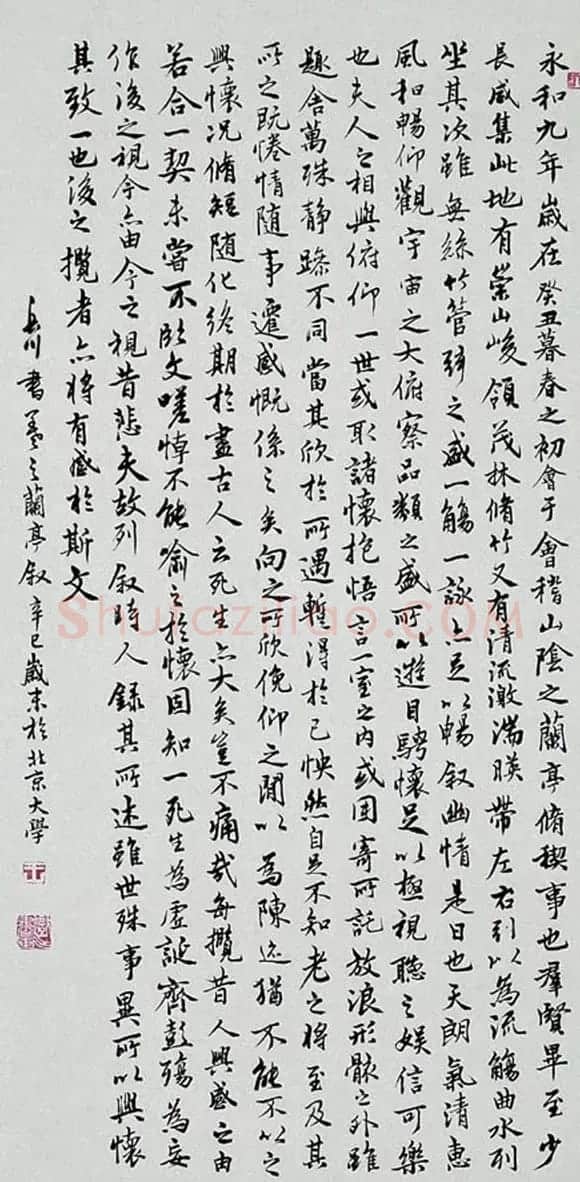 永和九年歲在癸丑暮春之初會于會稽山陰之蘭亭脩稧事也羣賢畢至少
長咸集此地有崇山峻領茂林脩竹又有清流激湍暎帶左右引以為流觴曲水列
坐其次雖無絲竹管弦之盛一觴一詠亦足以暢叙幽情是日也天朗氣清惠
風和暢仰觀宇宙之大俯察品類之盛所以遊目騁懷足以極視聽之娛信可樂
也夫人之相與俯仰一世或取諸懷抱悟言一室之內或因寄所託放浪形骸之外雖
趣舍萬殊静躁不同當其欣於所遇暫得於己怏然自足不知老之將至及其
所之既惓情随事遷感慨係之矣向之所欣俛仰之間以為陳迹猶不能不以之
興懷況脩短随化終期於盡古人云死生亦大矣豈不痛哉每攬昔人興感之由
若合一契未嘗不臨文嗟悼不能喻之於懷固知一死生為虛誕齊彭殤為妄
作後之視今亦由今之視昔悲夫故列叙時人録其所述雖世殊事異所以興懷
其致一也後之攬者亦將有感於斯文
書羲之蘭亭叙辛巳歲末於北京大學
Shufaziliao.COM